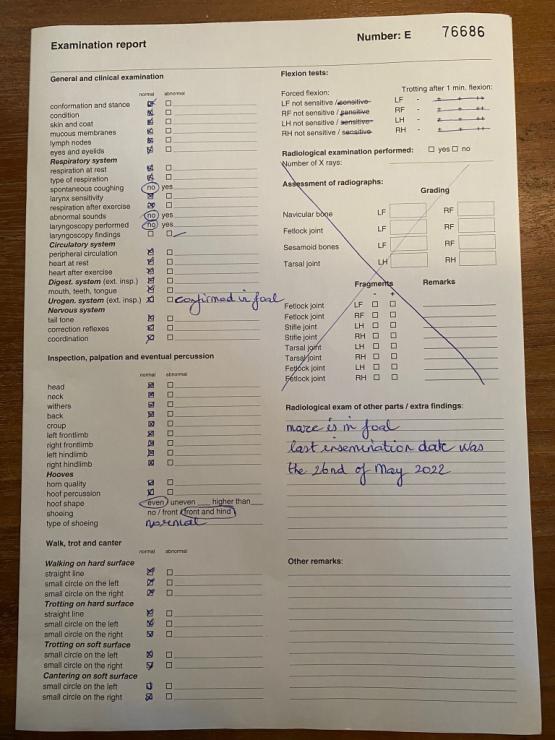 Examination report
Number: E 76686
General and clinical examination
normal abnormal
conformation and stance
condition
skin and coat
mucous membranes
lymph nodes
eyes and eyelids
Respiratory system
respiration at rest
type of respiration
spontaneous coughing no yes
larynx sensitivity
respiration after exercise
abnormal sounds no yes
laryngoscopy performed no yes
laryngoscopy findings
Circulatory system
peripheral circulation
heart at rest
heart after exercise
Digest. system (ext. insp.)
mouth, teeth, tongue
Urogen. system (ext. insp.) confirmed in foal
Nervous system
tail tone
correction reflexes
coordination
Inspection, palpation and eventual percussion
normal abnormal
head
neck
withers
back
croup
left frontlimb
right frontlimb
left hindlimb
right hindlimb
Hooves
horn quality
hoof percussion
hoof shape even / uneven higher than
shoeing no / front / front and hind
type of shoeing normal
Walk, trot and canter
normal abnormal
Walking on hard surface
straight line
small circle on the left
small circle on the right
Trotting on hard surface
straight line
small circle on the left
small circle on the right
Trotting on soft surface
small circle on the left
small circle on the right
Cantering on soft surface
small circle on the left
small circle on the right
Flexion tests:
Forced flexion: Trotting after 1 min. flexion:
LF not sensitive / sensitive LF - + + ++
RF not sensitive / sensitive RF - + + ++
LH not sensitive / sensitive LH - + + ++
RH not sensitive / sensitive RH - + + ++
Radiological examination performed: yes no
Number of X rays:
Assessment of radiographs:
Grading
Navicular bone LF RF
Fetlock joint LF RF
Sesamoid bones LF RF
Tarsal joint LH RH
Fragments Remarks
- +
Fetlock joint LF
Fetlock joint RF
Stifle joint LH
Stifle joint RH
Tarsal joint LH
Tarsal joint RH
Fetlock joint LH
Fetlock joint RH
Radiological exam of other parts / extra findings:
mare is in foal
last insemination date was
the 26nd of May 2022
Other remarks: